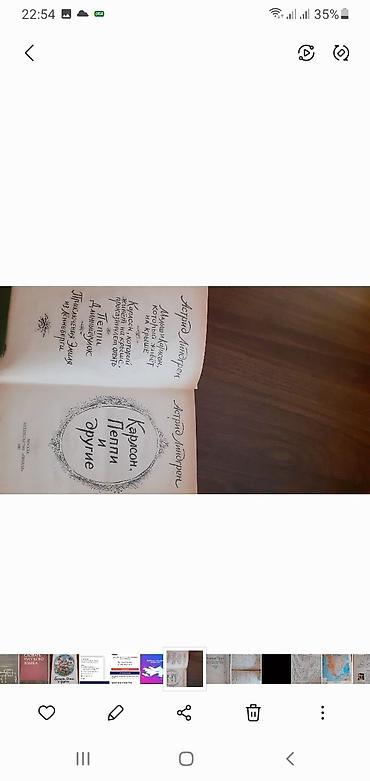 22:54
35%
Астрид Линдгрен
Малыш и Карлсон,
который живёт
на крыше
Карлсон, который
живёт на крыше,
проказничает опять
Пеппи
Длинныйчулок
Приключения Эмиля
из Лённеберги
Астрид Линдгрен
Карлсон,
Пеппи
и
другие
МОСКВА
РУССКОГО
ЯЗЫКА